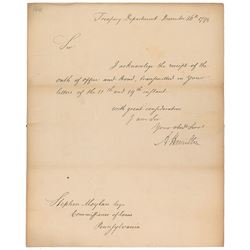 Treasury Department December 26th 1793
Sir
I acknowlege the receipt of the
oath of office and Bond, transmitted in your
letters of the 11th and 19th instant.
with great consideration
I am Sir
Your obedt Servt
A Hamilton
Stephen Moylan Esqr
Commissioner of Loans
Pennsylvania